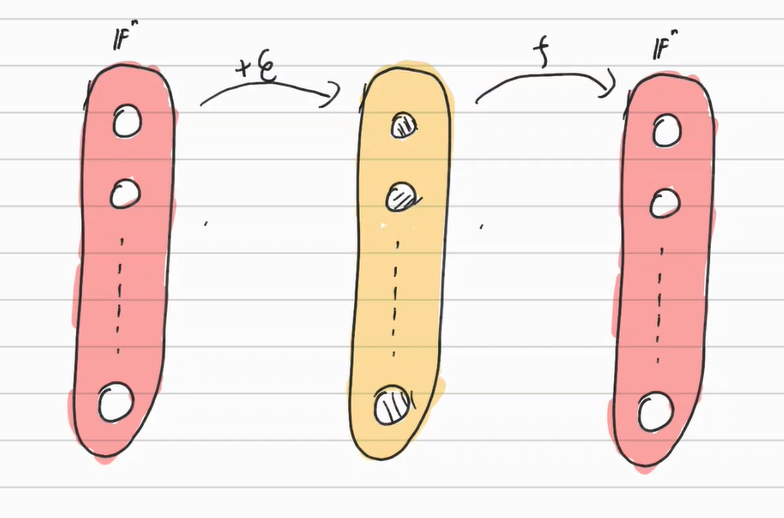 𝔽ⁿ
+ε
f
𝔽ⁿ